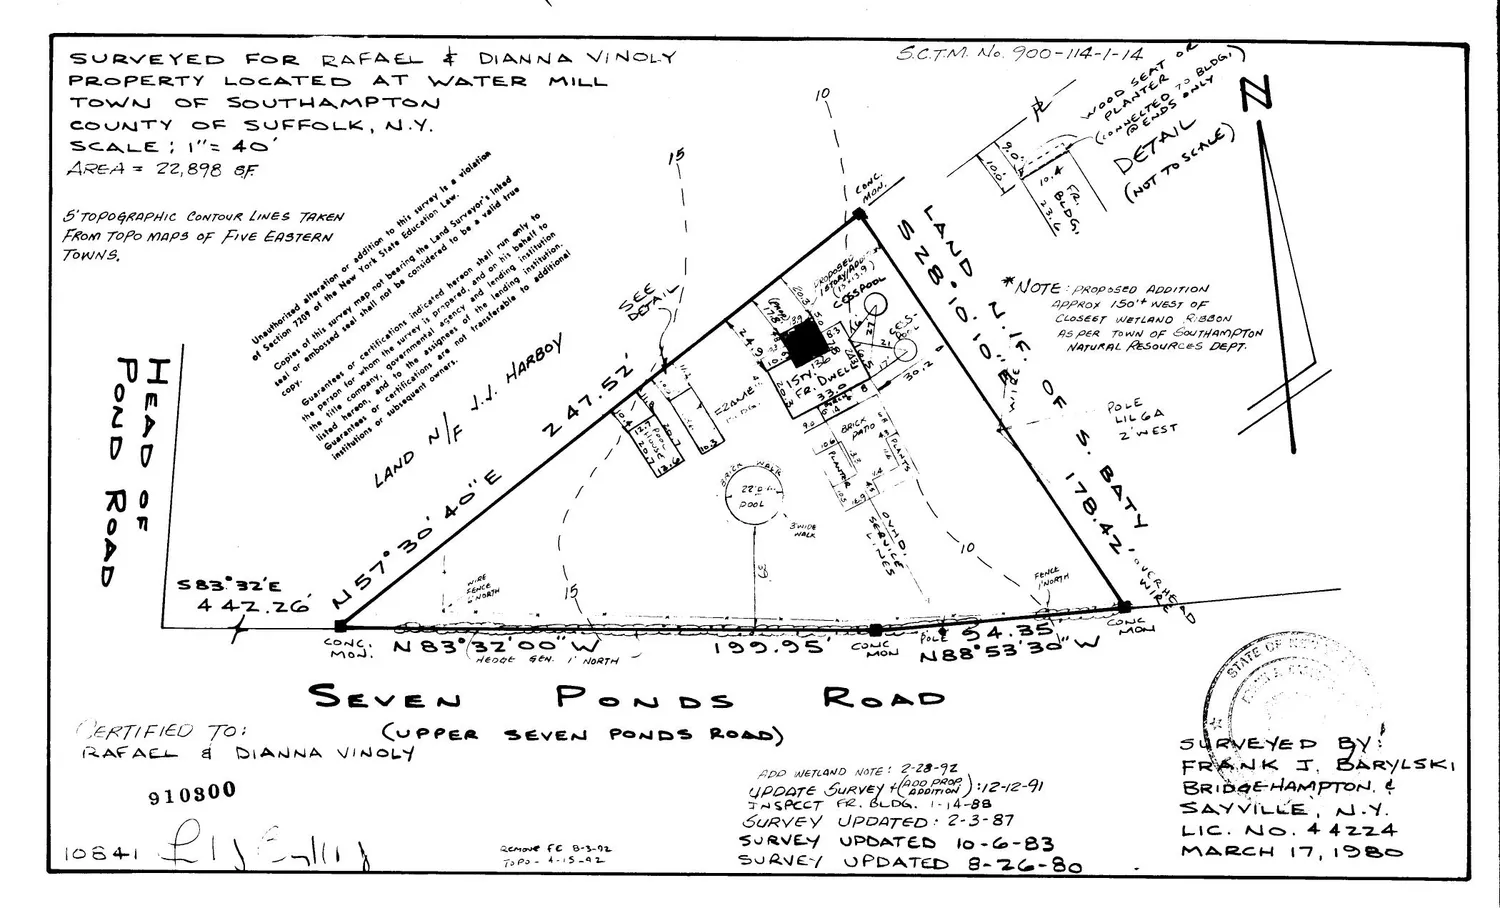 SURVEYED FOR RAFAEL & DIANNA VINOLY
PROPERTY LOCATED AT WATER MILL
TOWN OF SOUTHAMPTON
COUNTY OF SUFFOLK, N.Y.
SCALE: 1"= 40'
AREA = 22,898 SF.
5' TOPOGRAPHIC CONTOUR LINES TAKEN
FROM TOPO MAPS OF FIVE EASTERN
TOWNS.
S.C.T.M. No. 900-114-1-14
Unauthorized alteration or addition to this survey is a violation
of Section 7209 of the New York State Education Law.
Copies of this survey map not bearing the Land Surveyor's inked
seal or embossed seal shall not be considered to be a valid true
copy.
Guarantees or certifications indicated hereon shall run only to
the person for whom the survey is prepared, and on his behalf to
the title company, governmental agency and lending institution
listed hereon, and to the assignees of the lending institution.
Guarantees or certifications are not transferable to additional
institutions or subsequent owners.
WOOD SEAT OR
PLANTER
(CONNECTED TO BLDG.
@ ENDS ONLY)
DETAIL
(NOT TO SCALE)
9.0
10.0'
10.4
FR.
BLDG.
23.6
N
10
15
CONC.
MON.
LAND N/F OF S. BATY
S28°10'10"E
178.42'
*NOTE: PROPOSED ADDITION
APPROX 150'± WEST OF
CLOSEST WETLAND RIBBON
AS PER TOWN OF SOUTHAMPTON
NATURAL RESOURCES DEPT.
POLE
LILCO
2' WEST
WIRE
SEE
DETAIL
PROPOSED
1 STORY ADDIT.
CESSPOOL
CESS-
POOL
24.9
30.2
1 STY.
FR. DWELL.
33.0
LAND N/F J.J. HARBOY
247.52'
N57°30'40"E
POOL
HOUSE
20.7
12.6
10.3
BRICK
PATIO
PLANTER
PLANTS
BRICK WALK
POOL
3' WIDE
WALK
OVHD.
SERVICE
LINES
10
15
HEAD OF
POND ROAD
S83°32'E
442.26'
WIRE
FENCE
1' NORTH
FENCE
1' NORTH
OVERHEAD
WIRE
CONC.
MON.
N83°32'00"W
199.95'
CONC
MON
POLE
94.35'
N88°53'30"W
CONC
MON
HEDGE GEN. 1' NORTH
SEVEN PONDS ROAD
(UPPER SEVEN PONDS ROAD)
CERTIFIED TO:
RAFAEL & DIANNA VINOLY
910300
10841
REMOVE FE 8-3-92
TOPO - 4-15-92
ADD WETLAND NOTE: 2-28-92
UPDATE SURVEY + (ADD PROP. ADDITION): 12-12-91
INSPECT FR. BLDG. 1-14-88
SURVEY UPDATED: 2-3-87
SURVEY UPDATED 10-6-83
SURVEY UPDATED 8-26-80
STATE OF NEW
SURVEYED BY:
FRANK J. BARYLSKI
BRIDGEHAMPTON &
SAYVILLE, N.Y.
LIC. NO. 44224
MARCH 17, 1980